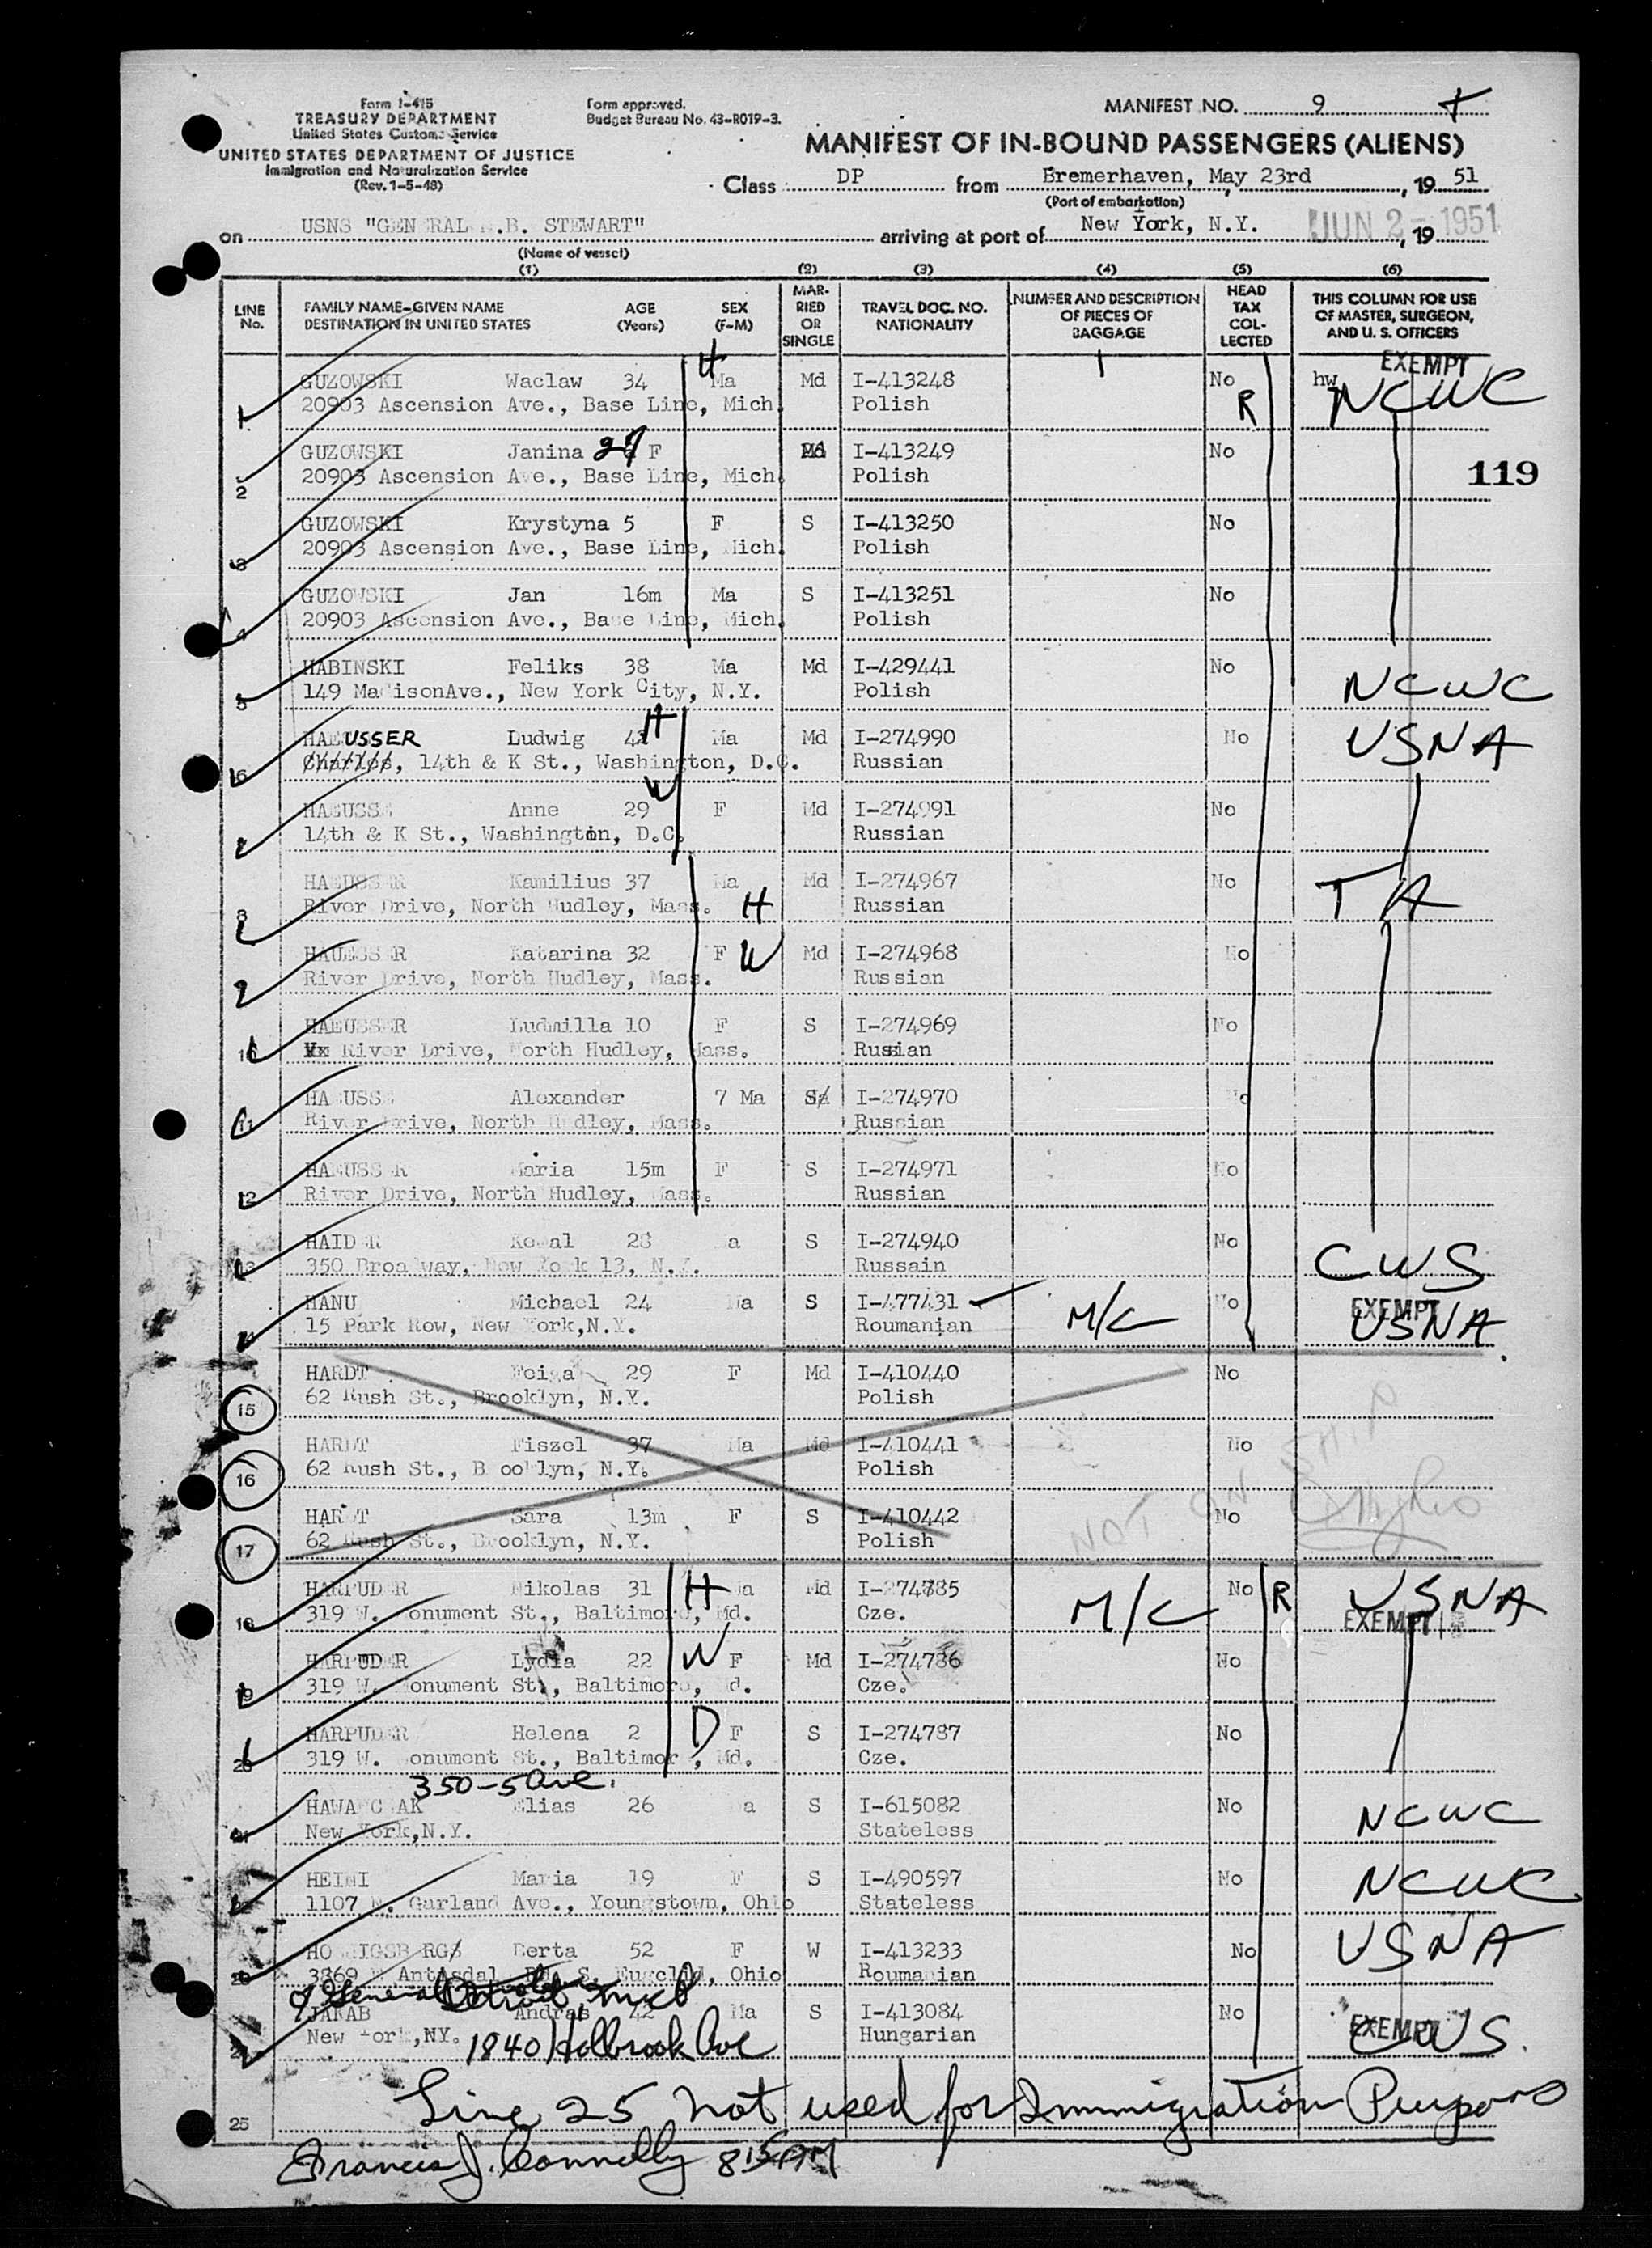 Form I-415
TREASURY DEPARTMENT
United States Customs Service
UNITED STATES DEPARTMENT OF JUSTICE
Immigration and Naturalization Service
(Rev. 1-5-48)
Form approved.
Budget Bureau No. 43-R019-3.
MANIFEST NO. 9
MANIFEST OF IN-BOUND PASSENGERS (ALIENS)
Class DP from Bremerhaven, May 23rd, 19 51
(Port of embarkation)
on USNS "GENERAL .B. STEWART" arriving at port of New York, N.Y. JUN 2 - 1951, 19
(Name of vessel)
(1) (2) (3) (4) (5) (6)
LINE No. FAMILY NAME—GIVEN NAME DESTINATION IN UNITED STATES AGE (Years) SEX (F-M) MARRIED OR SINGLE TRAVEL DOC. NO. NATIONALITY NUMBER AND DESCRIPTION OF PIECES OF BAGGAGE HEAD TAX COLLECTED THIS COLUMN FOR USE OF MASTER, SURGEON, AND U. S. OFFICERS
EXEMPT
1 GUZOWSKI Waclaw 34 H Ma Md I-413248 No hw NCWC
20903 Ascension Ave., Base Line, Mich. Polish R
2 GUZOWSKI Janina 27 F Md I-413249 No
20903 Ascension Ave., Base Line, Mich. Polish 119
3 GUZOWSKI Krystyna 5 F S I-413250 No
20903 Ascension Ave., Base Line, Mich. Polish
4 GUZOWSKI Jan 16m Ma S I-413251 No
20903 Ascension Ave., Base Line, Mich. Polish
5 HABINSKI Feliks 38 Ma Md I-429441 No NCWC
149 MadisonAve., New York City, N.Y. Polish
6 HAEUSSER Ludwig 42 H Ma Md I-274990 No USNA
Charles, 14th & K St., Washington, D.C. Russian
7 HAEUSSE Anne 29 W F Md I-274991 No
14th & K St., Washington, D.C. Russian
8 HAEUSSER Kamilius 37 Ma Md I-274967 No TA
River Drive, North Hudley, Mass. H Russian
9 HAUESSER Katarina 32 F W Md I-274968 No
River Drive, North Hudley, Mass. Russian
10 HAEUSSER Ludmilla 10 F S I-274969 No
River Drive, North Hudley, Mass. Russian
11 HAEUSSE Alexander 7 Ma S I-274970 No
River Drive, North Hudley, Mass. Russian
12 HAEUSSER Maria 15m F S I-274971 No
River Drive, North Hudley, Mass. Russian
13 HAIDER 28 Ma S I-274940 No CWS
350 Broadway, New York 13, N.Y. Russain
14 HANU Michael 24 Ma S I-477431 M/C No EXEMPT USNA
15 Park Row, New York,N.Y. Roumanian
15 HARDT Foiga 29 F Md I-410440 No
62 Rush St., Brooklyn, N.Y. Polish
16 HARDT Fiszel 37 Ma Md I-410441 No
62 Rush St., Brooklyn, N.Y. Polish
17 HARDT Sara 13m F S I-410442 No NOT ON SHIP
62 Rush St., Brooklyn, N.Y. Polish
18 HARPUDER Nikolas 31 H Ma Md I-274785 M/C No R USNA
319 W. Monument St., Baltimore, Md. Cze. EXEMPT
19 HARPUDER Lydia 22 W F Md I-274786 No
319 W. Monument St., Baltimore, Md. Cze.
20 HARPUDER Helena 2 D F S I-274787 No
319 W. Monument St., Baltimore, Md. Cze.
350-5 Ave.
21 Elias 26 Ma S I-615082 No NCWC
New York,N.Y. Stateless
22 HEINI Maria 19 F S I-490597 No NCWC
1107 N. Garland Ave., Youngstown, Ohio Stateless
23 Berta 52 F W I-413233 No USNA
3869 Ohio Roumanian
Detroit Mich
24 JAKAB Andras 42 Ma S I-413084 No EXEMPT CWS
New York,NY. 1840 Holbrook Ave Hungarian
25 Line 25 not used for Immigration Purposes
Francis J. Connelly 815AM